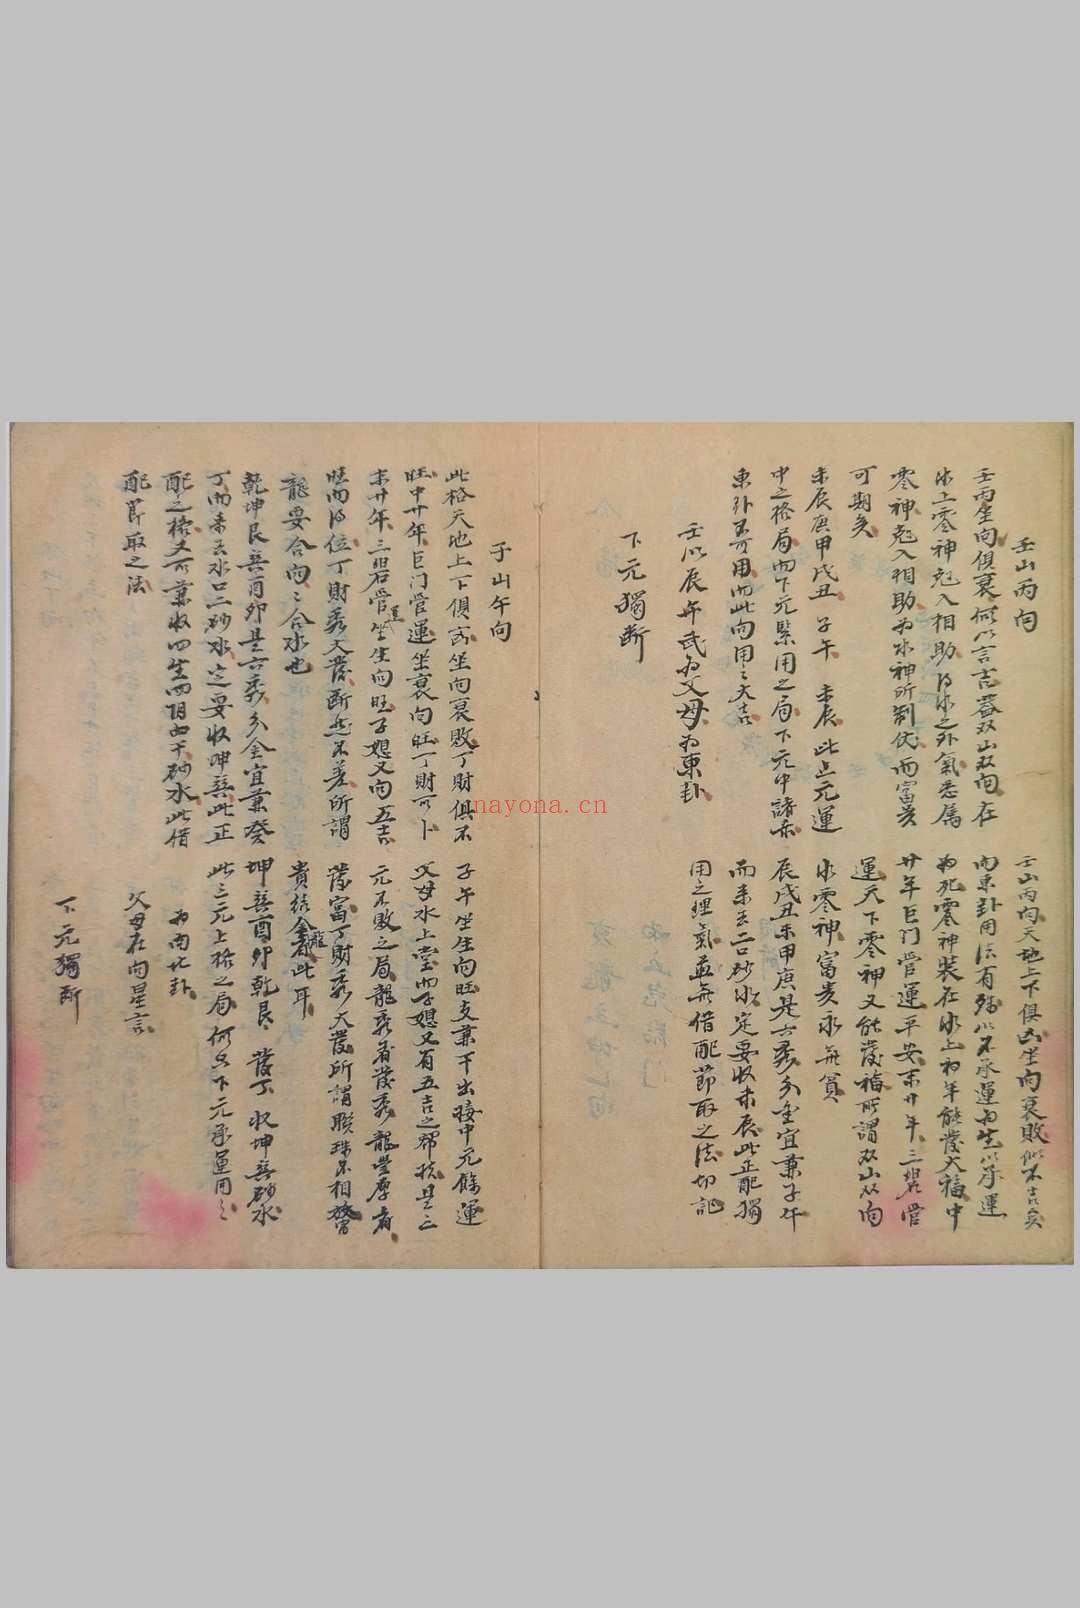 壬山丙向
壬丙坐向俱衰何以言吉蓋双山双向在
水上零神尅入相助得水之外氣悉属
零神尅入相助为水神所制伏而富贵
可期矣
未辰庚甲戌丑 子午 未辰 此上元運
中之格局而下元緊用之局下元中諸亦
東卦不可用而此向用之大吉
壬以辰午戌为父母为東卦
下元獨断
壬山丙向天地上下俱凶坐向衰敗似不吉矣
向東卦用法有殊以不承運为生以承運
为死零神装在水上初年能發大福中
廿年巨门管運平安末廿年三碧管
運天下零神又能發福所謂双山双向
水零神富贵永無貧
辰戌丑未甲庚是六秀分金宜兼子午
而来去二口砂水定要收未辰此正配獨
用之理氣並無借配節取之法切記
子山午向
此格天地上下俱凶坐向衰敗丁財俱不
旺中廿年巨门管運坐衰向旺丁財可卜
末廿年三碧管運坐生向旺子媳又向五吉
旺而得位丁財秀大發断然不差所謂
龍要合向々合水也
乾坤艮巽酉卯是六秀分金宜兼癸
丁而来去水口二砂水定要收坤巽此正
配之格又可兼收四生四阴四干砂水此借
配節取之法
子午坐生向旺支兼干出接中元餘運
父母水上堂而子媳又有五吉之帮扶是三
元不敗之局龍秀者發秀龍豐厚者
發富丁財秀大發所謂聯珠不相放
貴结金龍看此耳
坤巽酉卯乾艮 發丁 收坤巽砂水
此三元上格之局何只下元承運用之
为南北卦
父母在向星言
下元獨断
nayona.cn